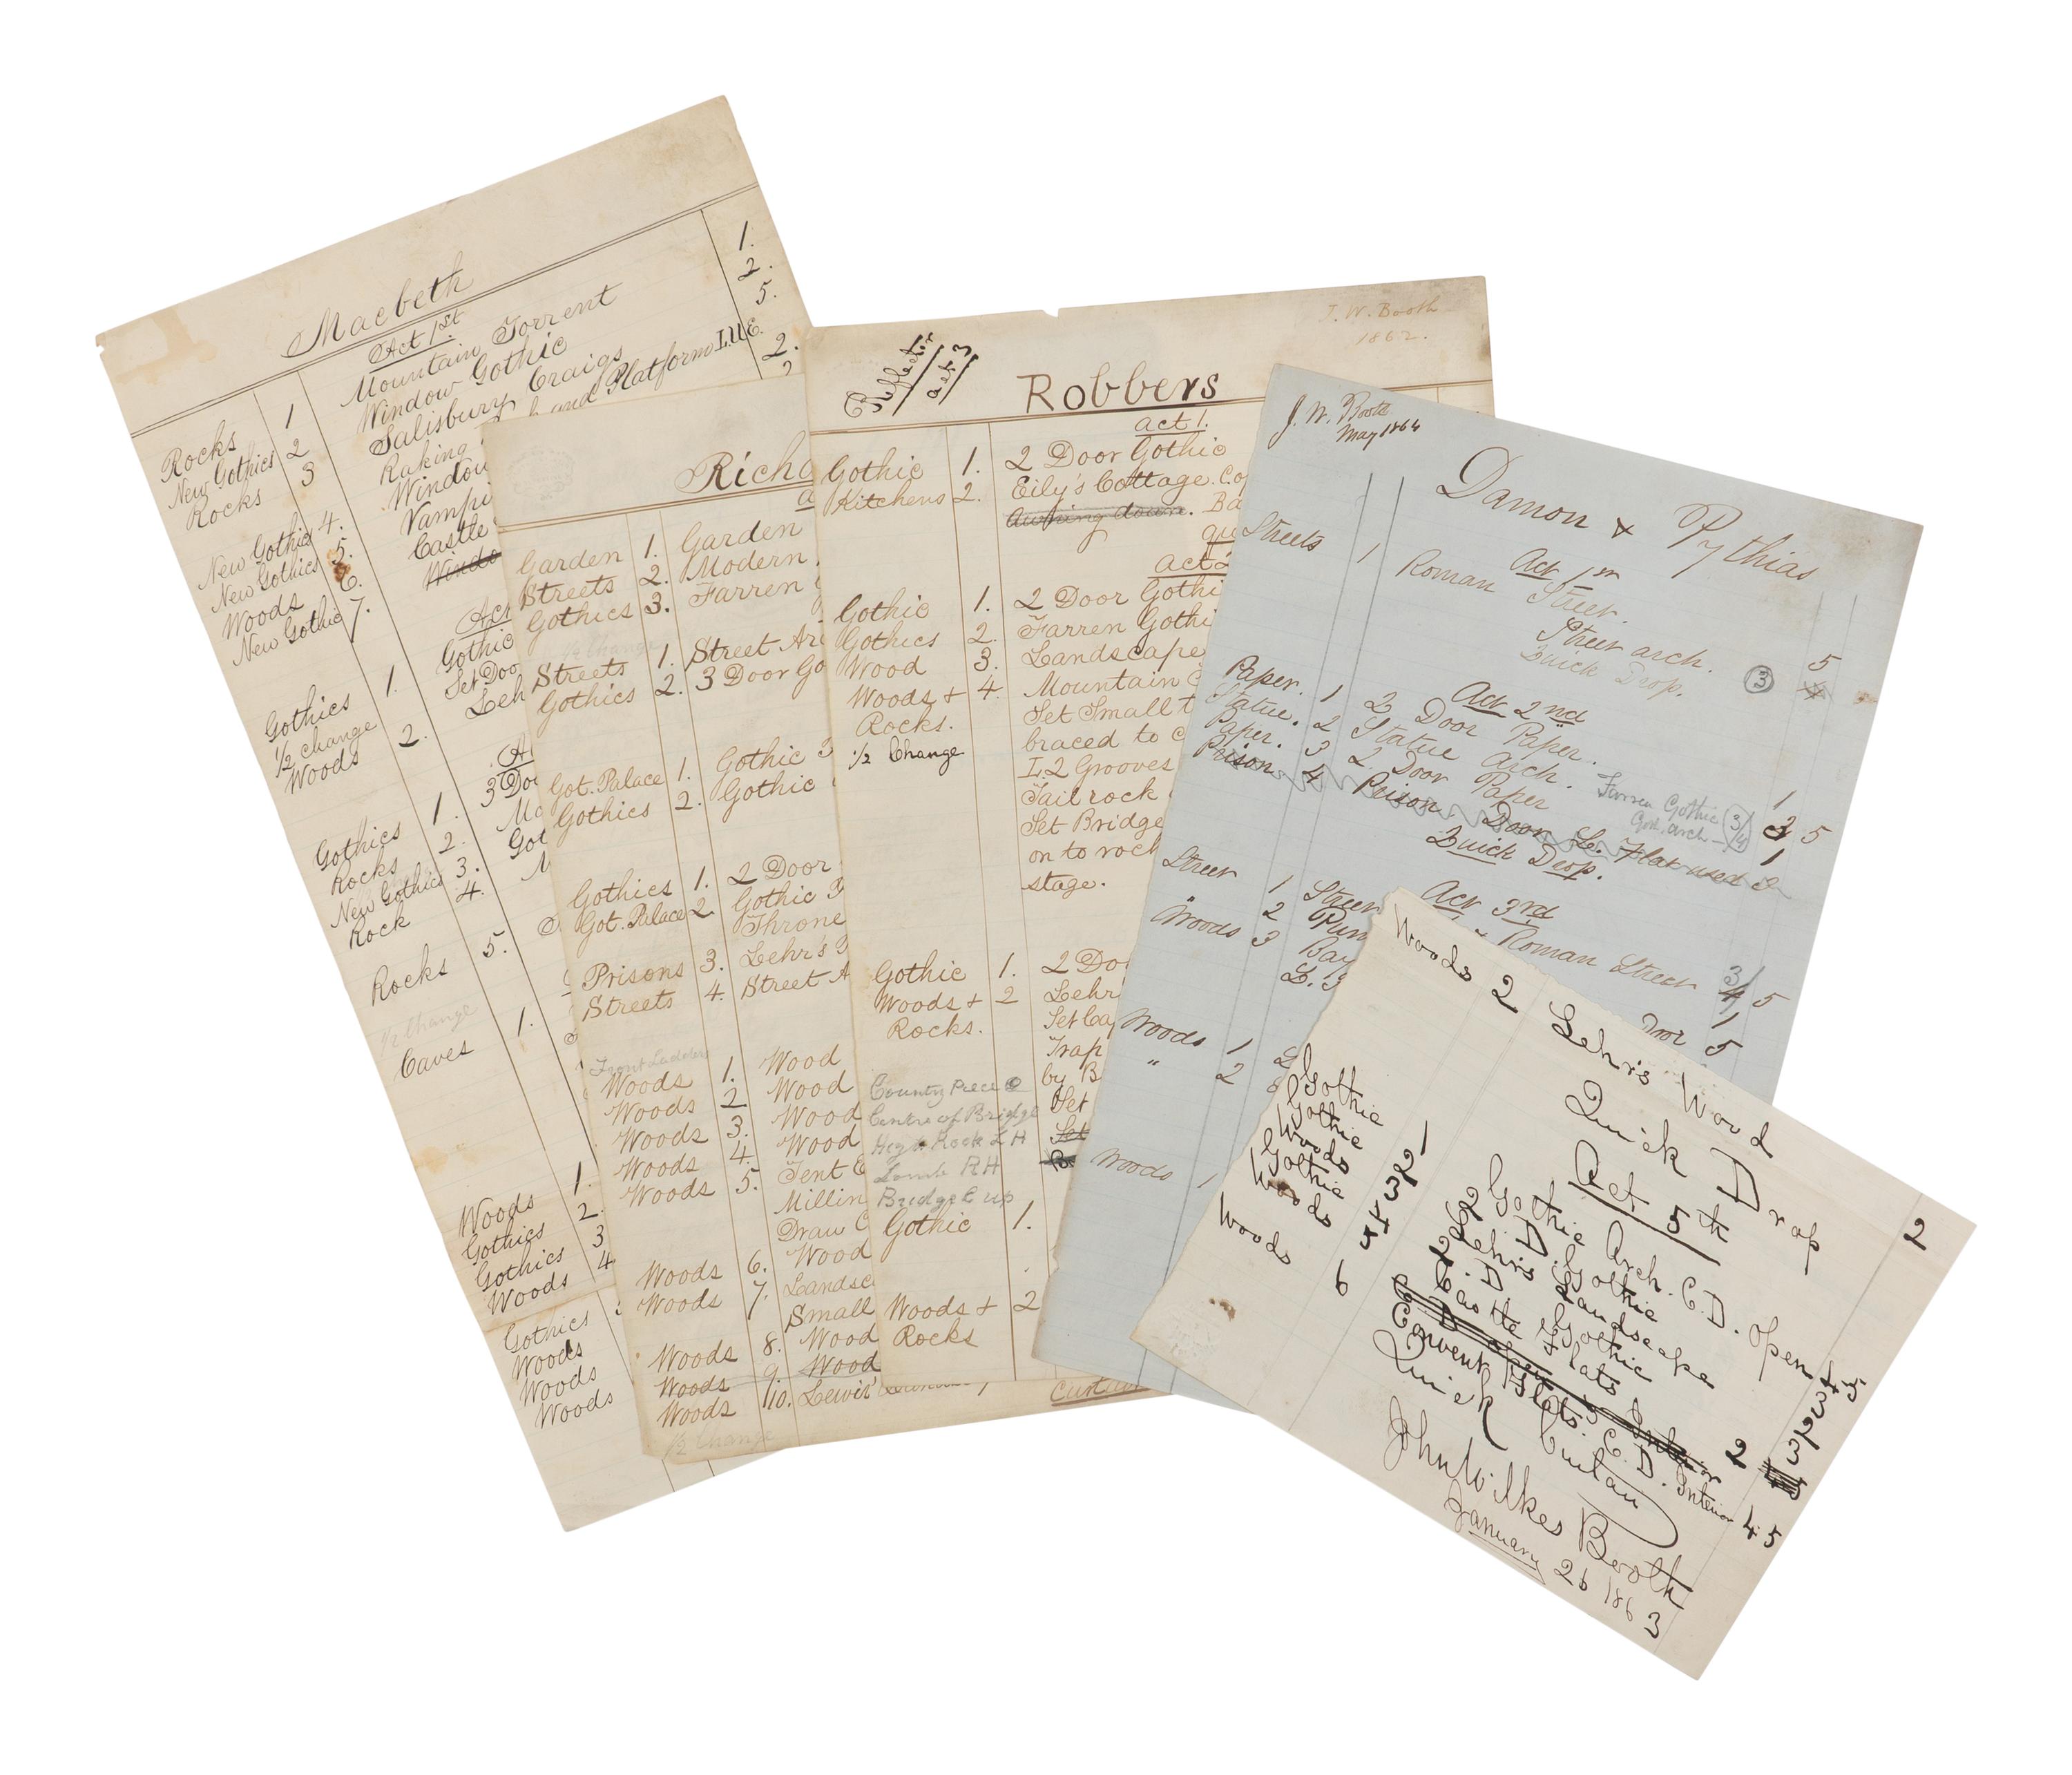 Macbeth
Act 1st
Rocks 1 Mountain Torrent 1.
New Gothics 2 Window Gothic 2.
Rocks 3 Salisbury Craigs 5.
Raking and Platform L.U.E.
New Gothics 4. Window 2.
New Gothics 5. Vampi
Woods 6. Castle
New Gothic 7. Windo
Act
Gothics 1. Gothic
1/2 change Set Doo
Woods 2. Leh
Gothics 1. 3 Doo
Rocks 2.
New Gothics 3. Got
Rock 4.
Rocks 5.
1/2 Change
Caves 1.
Woods 1.
Gothics 2.
Gothics 3
Woods 4
Gothics
Woods
Woods
Woods
Richa
Garden 1. Garden
Streets 2. Modern
Gothics 3. Farren
1/2 Change
Streets 1. Street Ar
Gothics 2. 3 Door Go
Got. Palace 1. Gothic
Gothics 2. Gothic
Gothics 1. 2 Door
Got. Palace 2. Gothic
Throne
Prisons 3. Lehr's
Streets 4. Street A
Woods 1. Wood
Woods 2 Wood
Woods 3. Wood
Woods 4. Wood
Woods 5. Tent
Millin
Draw C
Woods 6. Wood
Woods 7. Landsc
Small
Woods 8. Wood
Woods 9. Wood
Woods 10. Lewis'
1/2 Change
Reflector
act 3
J. W. Booth
1862.
Robbers
act 1.
Gothic 1. 2 Door Gothic
Kitchens 2. Eily's Cottage. C.o
Awning down. Ba
qu
act 2
Gothic 1. 2 Door Gothi
Gothics 2. Farren Gothi
Wood 3. Landscape
Woods + 4. Mountain
Rocks. Set Small t
1/2 Change braced to c
L. 2 Grooves
Tail rock
Set Bridge
on to rock
stage.
Gothic 1. 2 Do
Woods + 2 Lehr'
Rocks. Set Ca
Trap
by B
Country Piece Set
Centre of Bridge Set
High Rock L H
Lomb RH
Bridge C up
Gothic 1.
Woods + 2
Rocks
Curtai
J. W. Booth
May 1864
Damon & Pythias
Act 1st
Streets 1 Roman Street.
Street arch. 5
Quick Drop. 3 4
Act 2nd
Paper. 1 2 Door Paper. 1
Statue. 2 Statue Arch. 3 5
Paper. 3 2 Door Paper 1
Farren Gothic 3
Got. arch 4
Prison 4 Prison Door L. Flat used 2
Quick Drop.
Act 3rd
Street 1 Street Roman Street 3/4 5
" 2 Pun 1
Woods 3 Bay Door 5
L. 3
Woods 1
" 2
Woods 1
Woods 2 Lehr's Wood 2
Quick Drop
Act 5th
Gothic 1 Gothic Arch. C. D. open 4 5
Gothic 2 2 D Gothic 3
Woods 3 Lehrs Landscape 2
Gothic 4 2 D Gothic 3
Woods 5 Castle Flats
Woods 6 C. D. open Interior 2
Convent Flats. C. D. Interior 4 5
Quick Curtain
John Wilkes Booth
January 26 1863